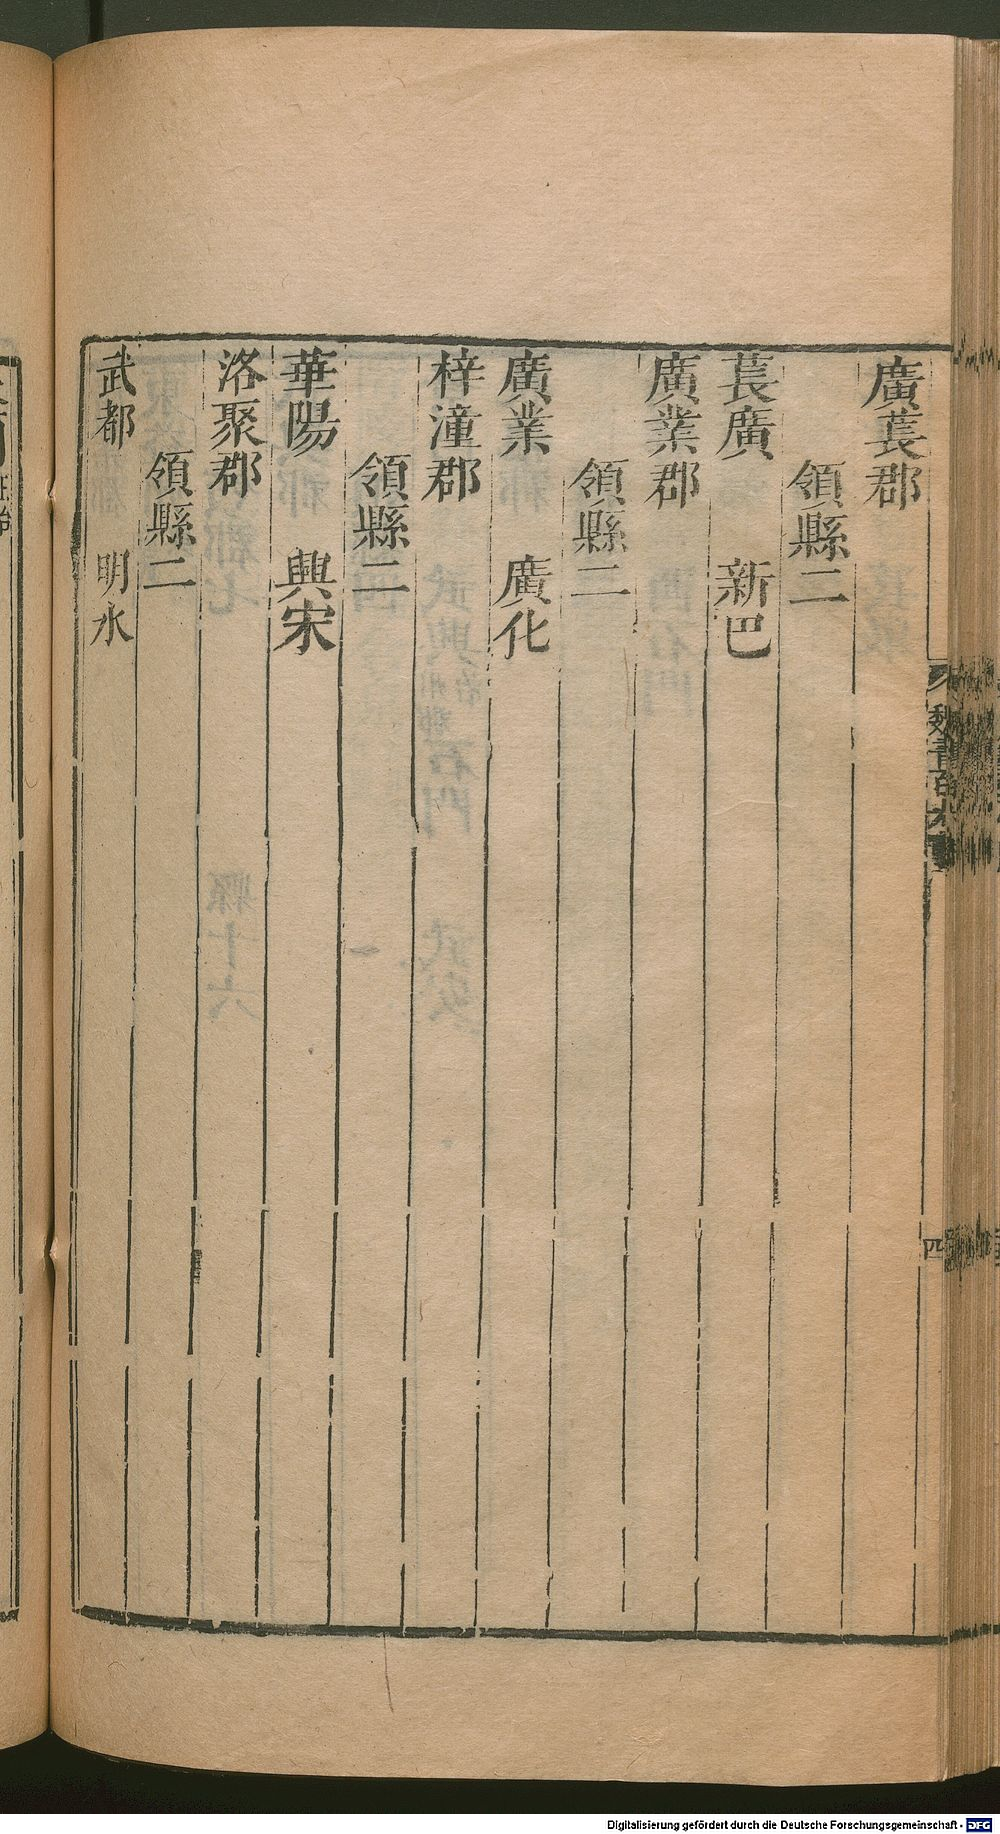 廣萇郡
領縣二
萇廣 新巴
廣業郡
領縣二
廣業 廣化
梓潼郡
領縣二
華陽 興宋
洛聚郡
領縣二
武都 明水
四
Digitalisierung gefördert durch die Deutsche Forschungsgemeinschaft - DFG